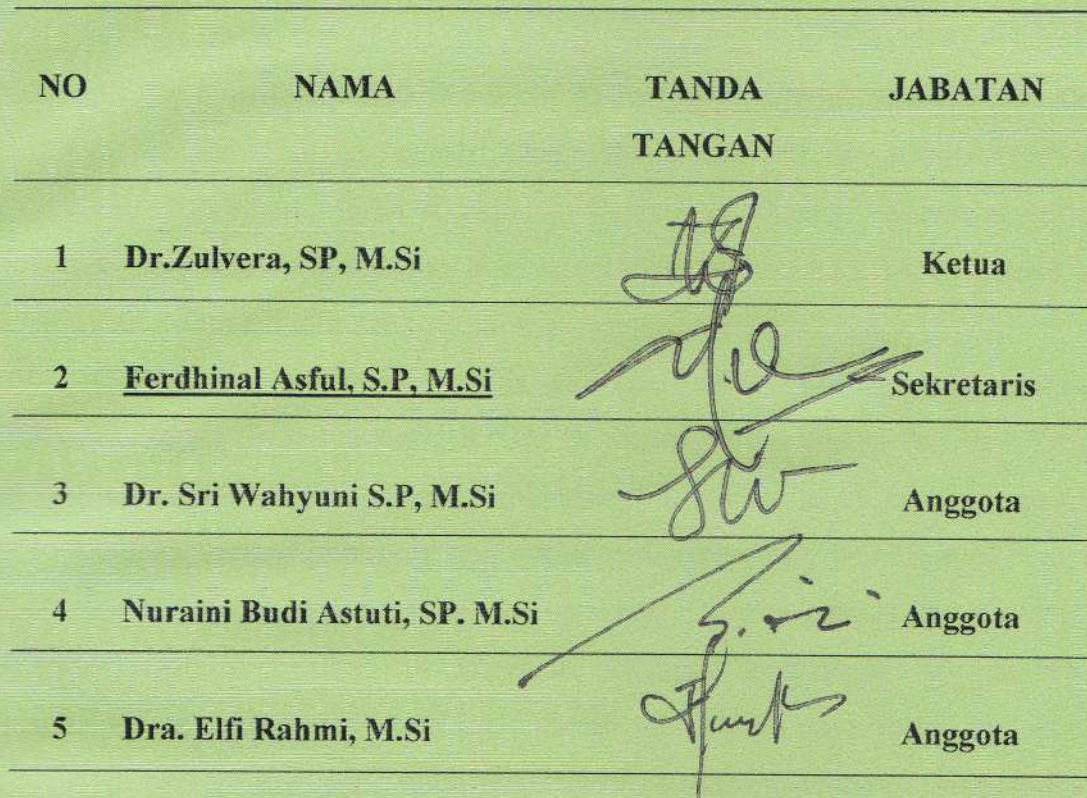 NO NAMA TANDA TANGAN JABATAN
1 Dr.Zulvera, SP, M.Si Ketua
2 Ferdhinal Asful, S.P, M.Si Sekretaris
3 Dr. Sri Wahyuni S.P, M.Si Anggota
4 Nuraini Budi Astuti, SP. M.Si Anggota
5 Dra. Elfi Rahmi, M.Si Anggota